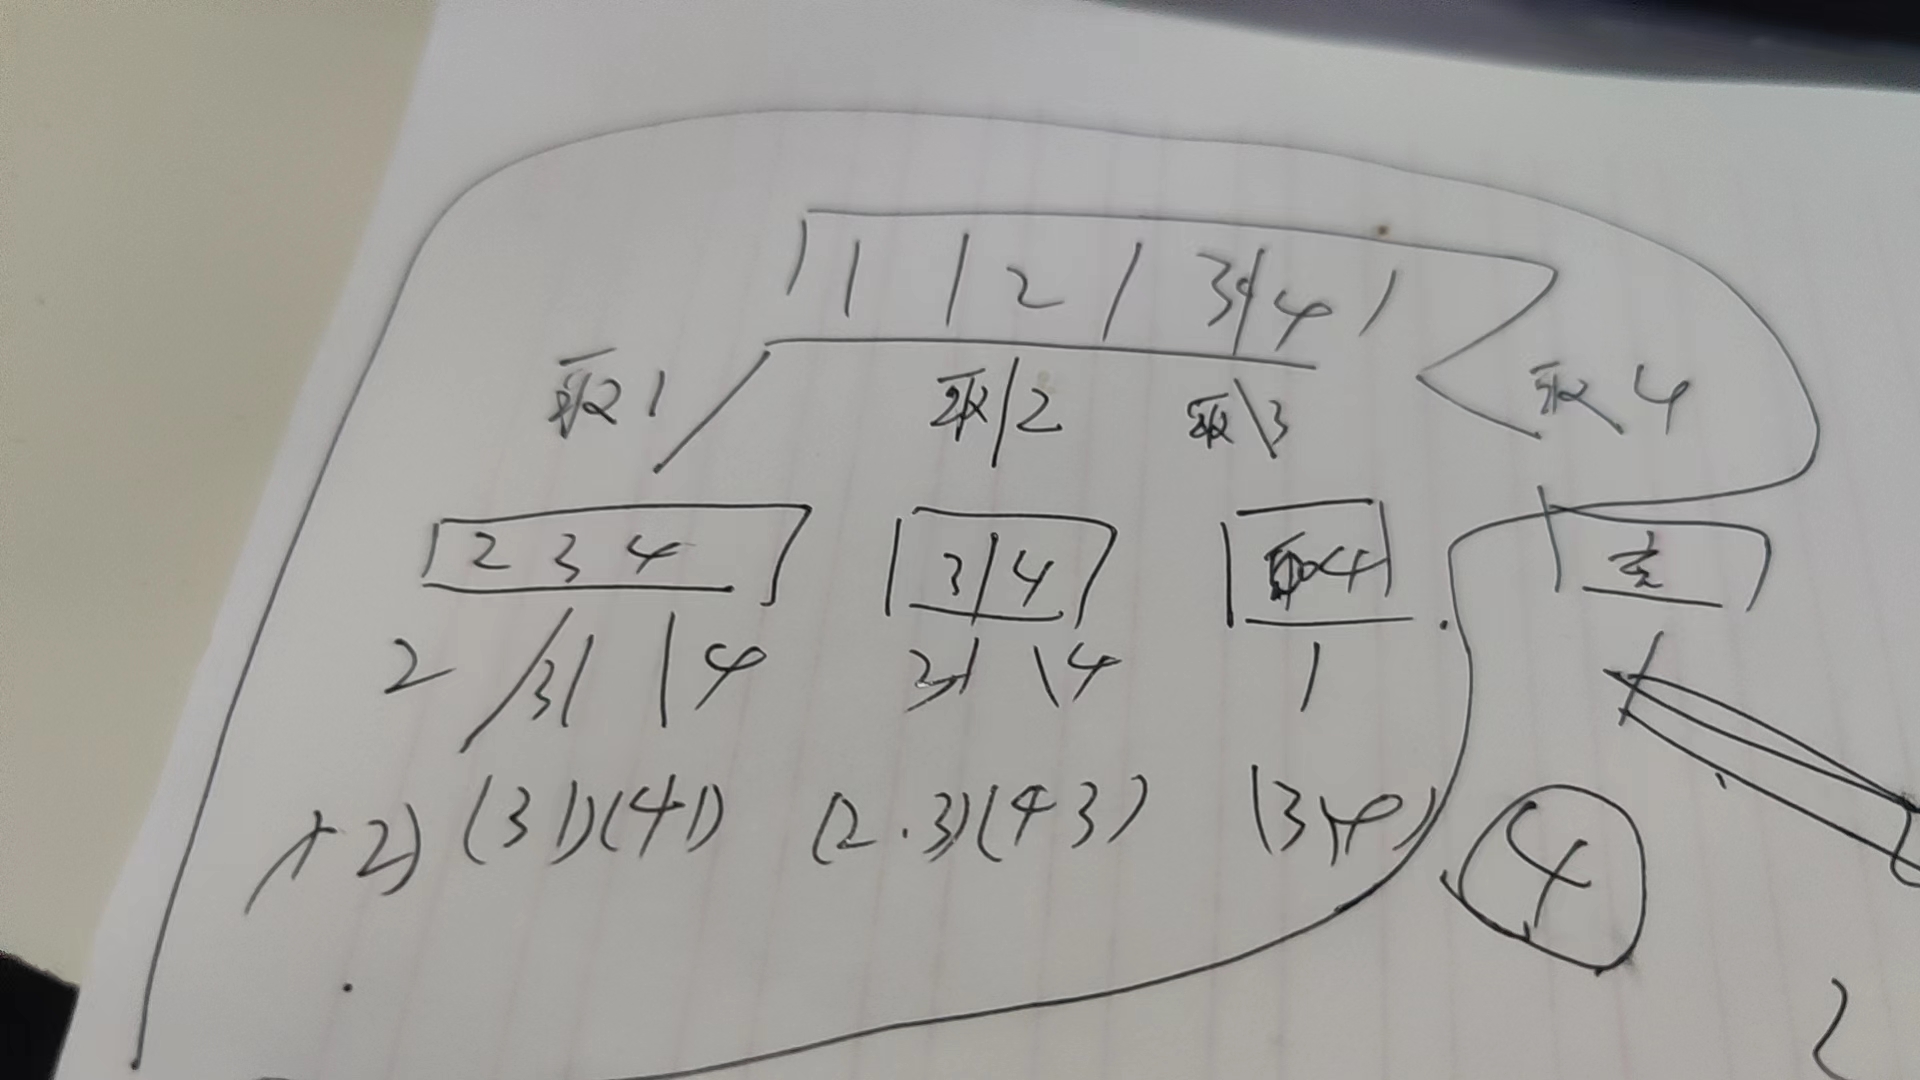 1 2 3 4
取1 取2 取3 取4
2 3 4 3 4 4
2 3 4 3 4 1
2) (31)(41) (2.3)(43) (34)
4